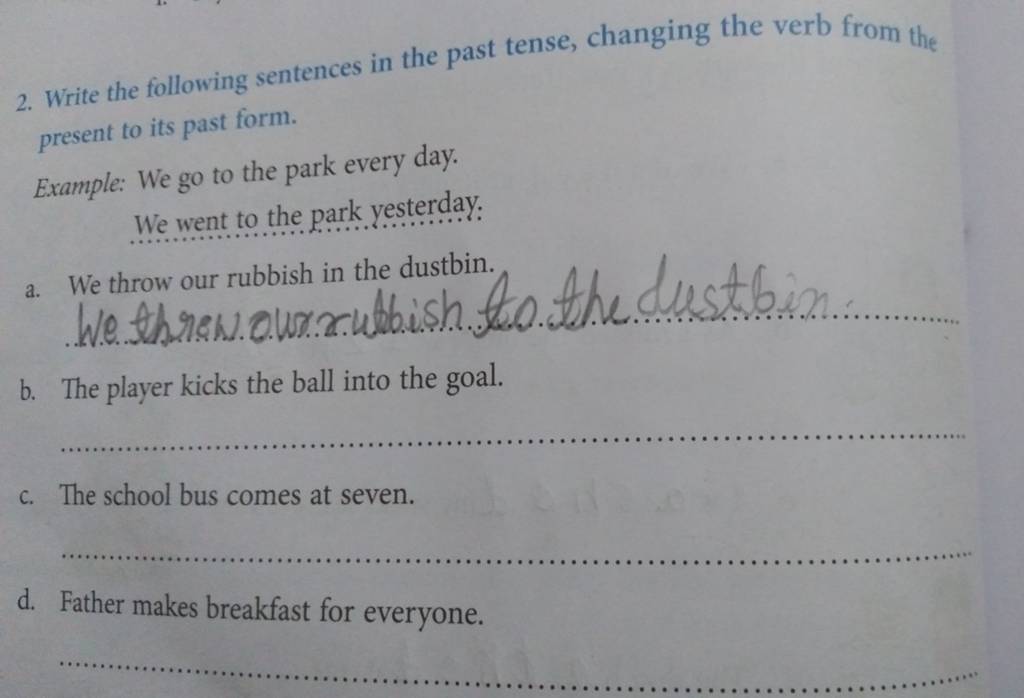 2. Write the following sentences in the past tense, changing the verb from the
present to its past form.
Example: We go to the park every day.
We went to the park yesterday.
a. We throw our rubbish in the dustbin.
We threw our rubbish to the dustbin.
b. The player kicks the ball into the goal.
c. The school bus comes at seven.
d. Father makes breakfast for everyone.